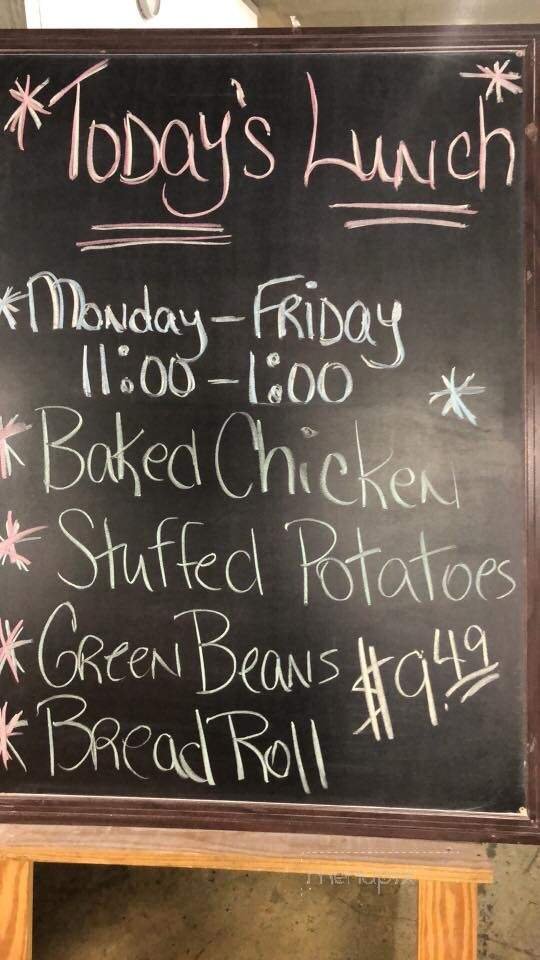 *Today's Lunch*
*Monday-Friday
11:00-1:00 *
*Baked Chicken
*Stuffed Potatoes
*Green Beans $9.49
*Bread Roll
menupix